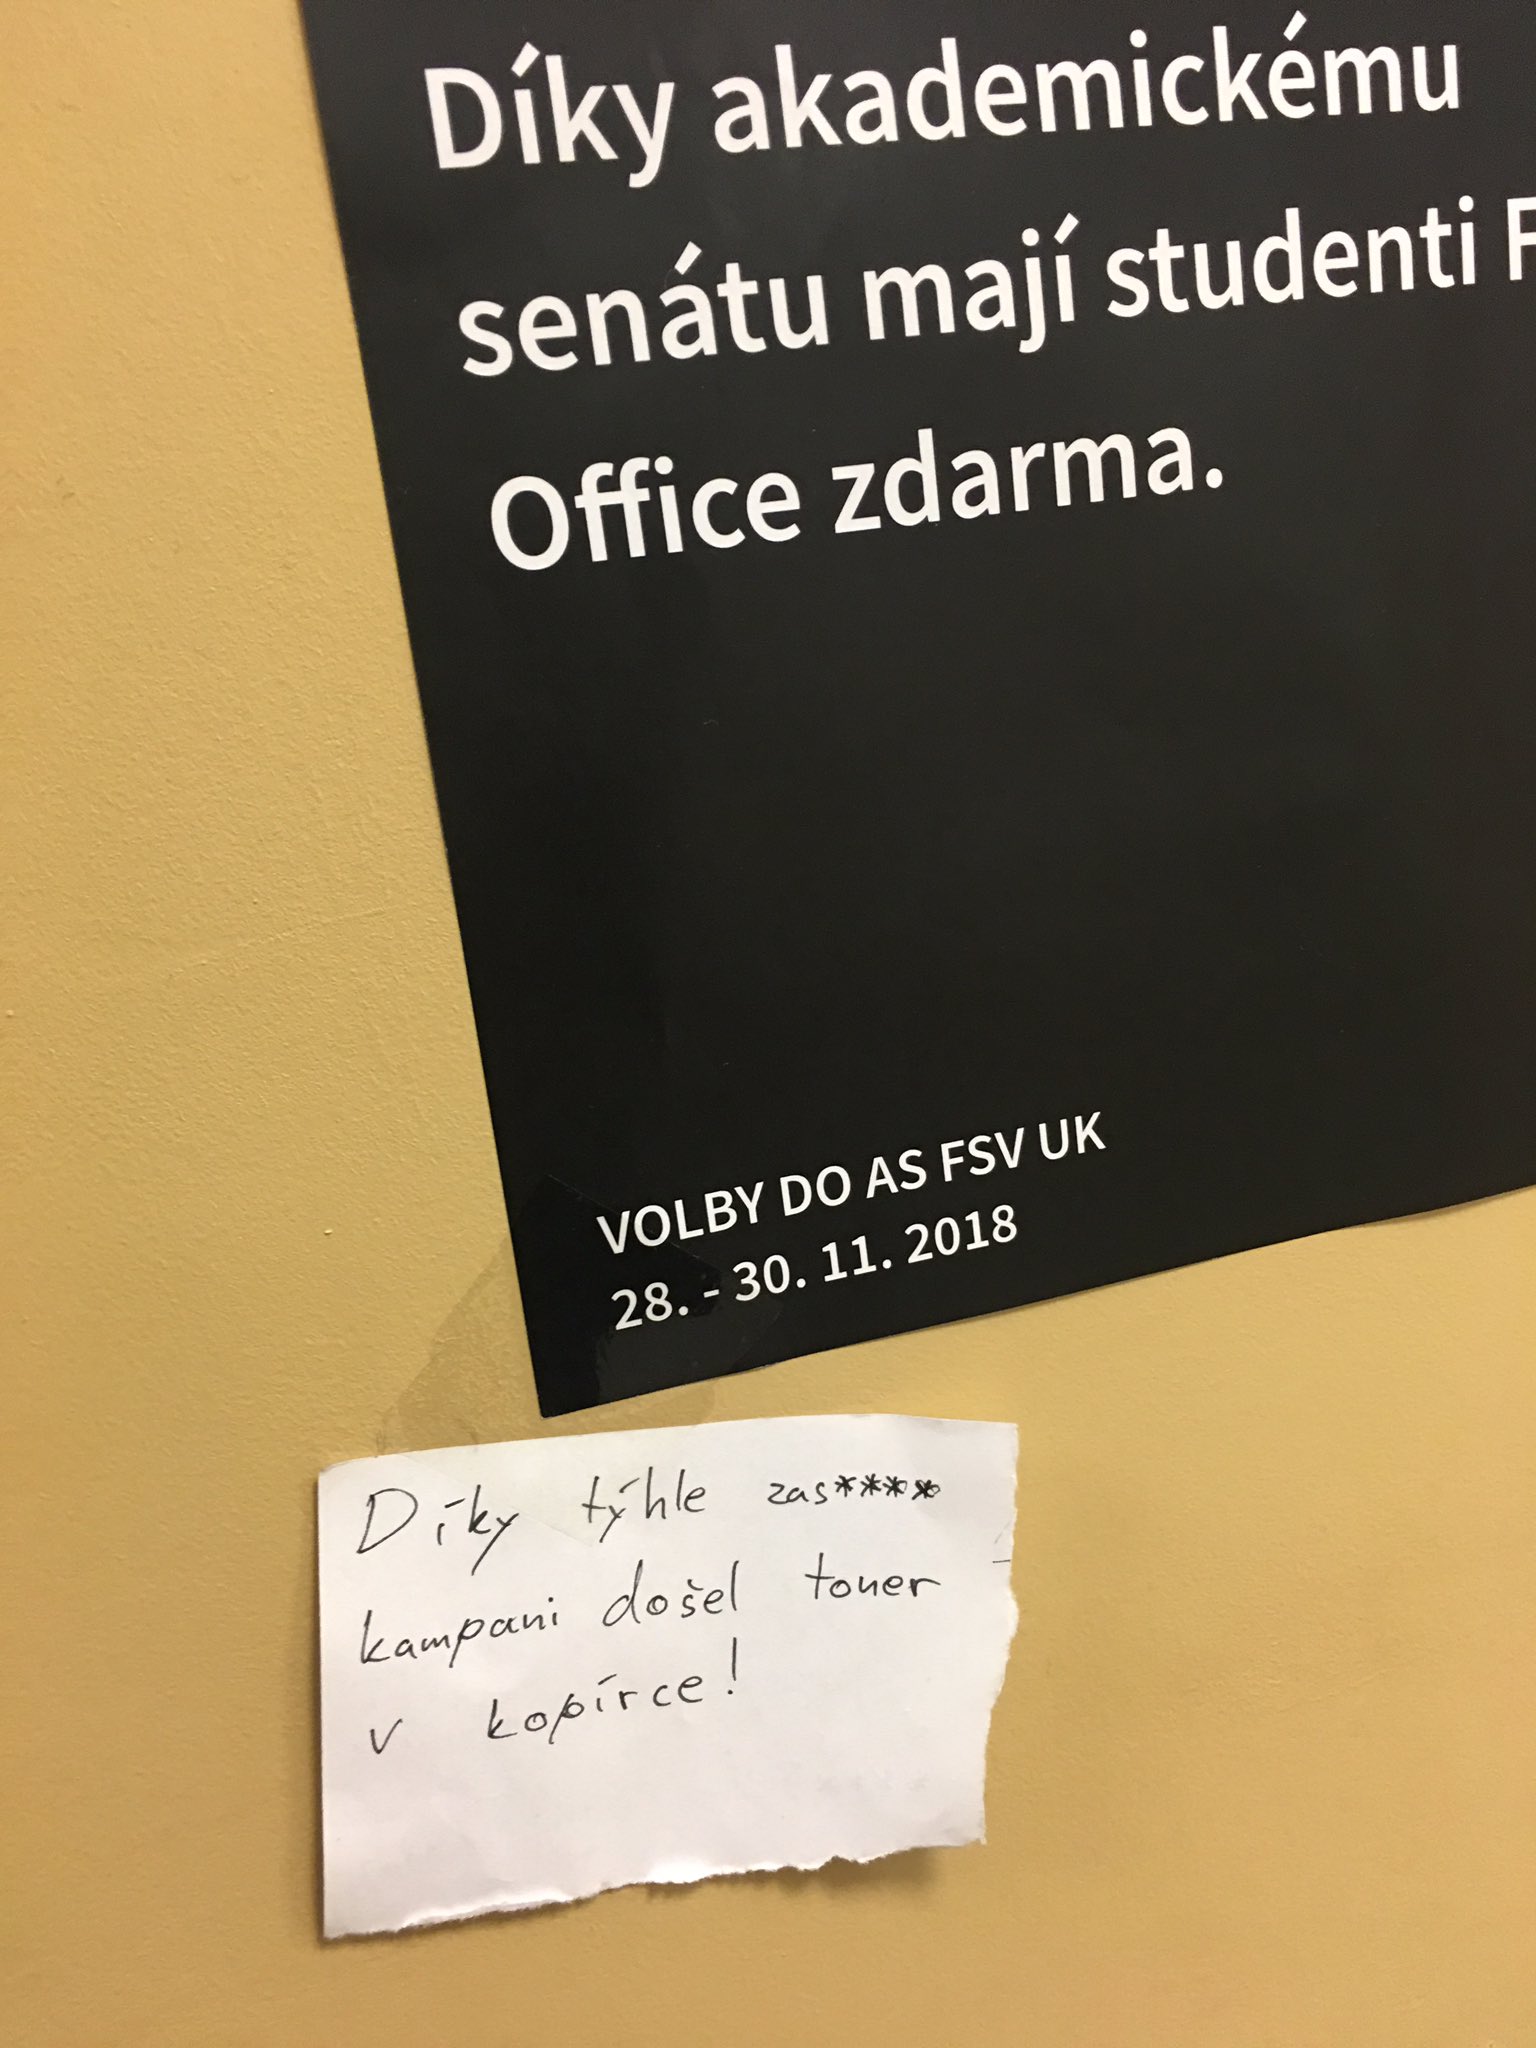 Díky akademickému
senátu mají studenti F
Office zdarma.
VOLBY DO AS FSV UK
28. - 30. 11. 2018
Díky týhle zas****
kampani došel toner
v kopírce!